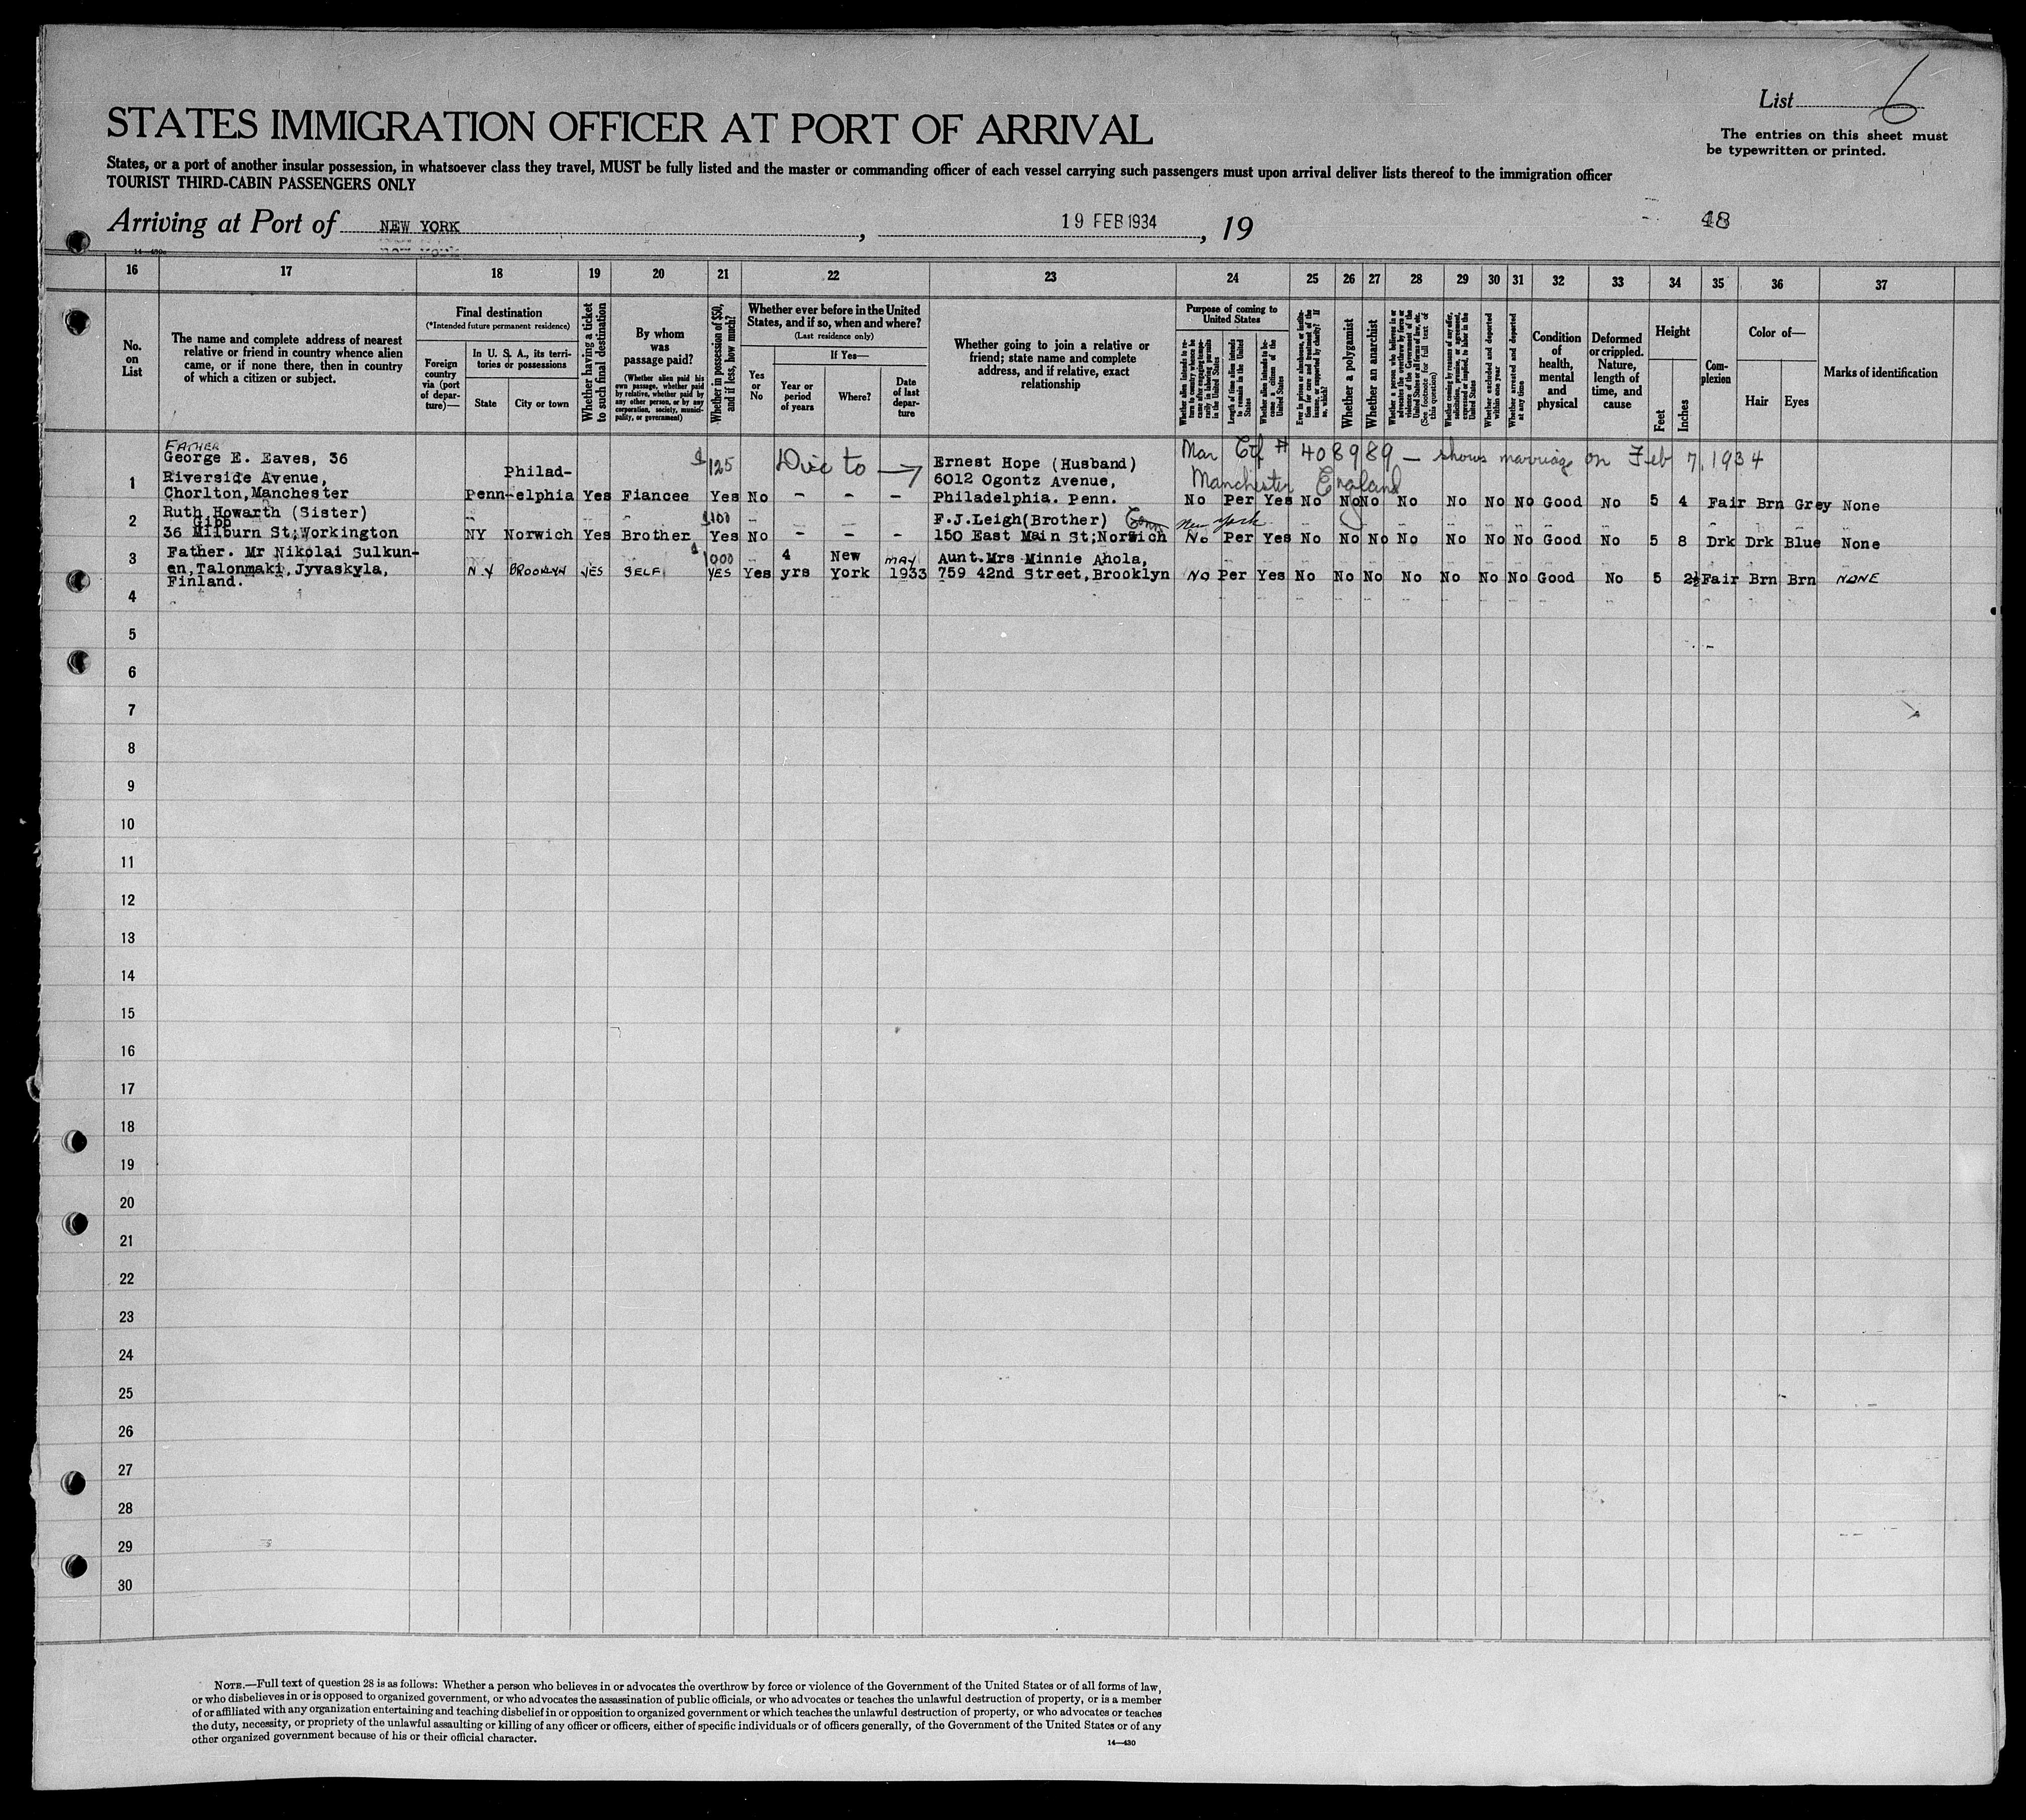 List 6
The entries on this sheet must
be typewritten or printed.
STATES IMMIGRATION OFFICER AT PORT OF ARRIVAL
States, or a port of another insular possession, in whatsoever class they travel, MUST be fully listed and the master or commanding officer of each vessel carrying such passengers must upon arrival deliver lists thereof to the immigration officer
TOURIST THIRD-CABIN PASSENGERS ONLY
Arriving at Port of NEW YORK, 19 FEB 1934, 19
48
16 17 18 19 20 21 22 23 24 25 26 27 28 29 30 31 32 33 34 35 36 37
No.
on
List
The name and complete address of nearest
relative or friend in country whence alien
came, or if none there, then in country
of which a citizen or subject.
Final destination
(*Intended future permanent residence)
Foreign
country
via (port
of depar-
ture)—
In U. S. A., its terri-
tories or possessions
State City or town
Whether having a ticket
to such final destination
By whom
was
passage paid?
(Whether alien paid his
own passage, whether paid
by relative, whether paid by
any other person, or by any
corporation, society, munici-
pality, or government)
Whether in possession of $50,
and if less, how much?
Whether ever before in the United
States, and if so, when and where?
(Last residence only)
Yes
or
No
If Yes—
Year or
period
of years
Where?
Date
of last
depar-
ture
Whether going to join a relative or
friend; state name and complete
address, and if relative, exact
relationship
Purpose of coming to
United States
Length of time alien intends
to remain in the United
States
Whether alien intends to be-
come a citizen of the
United States
Whether a polygamist
Whether an anarchist
(See footnote for full text of
this question)
Whether excluded and deported
within one year
Whether arrested and deported
at any time
Condition
of
health,
mental
and
physical
Deformed
or crippled.
Nature,
length of
time, and
cause
Height
Feet Inches
Com-
plexion
Color of—
Hair Eyes
Marks of identification
FATHER
George E. Eaves, 36 $125 Divc to → Ernest Hope (Husband) Mar Ctf # 408989 — shows marriage on Feb 7, 1934
1 Riverside Avenue, Philad- 6012 Ogontz Avenue, Manchester England
Chorlton, Manchester Penn-elphia Yes Fiancee Yes No - - - Philadelphia. Penn. No Per Yes No No No No No No No Good No 5 4 Fair Brn Grey None
2 Ruth Howarth (Sister) $100 F.J.Leigh(Brother) Conn New York
Gibb
36 Milburn St;Workington NY Norwich Yes Brother Yes No - - - 150 East Main St;Norwich No Per Yes No No No No No No No Good No 5 8 Drk Drk Blue None
3 Father. Mr Nikolai Sulkun- $1000 4 New MAY Aunt.Mrs Minnie Ahola,
en,Talonmaki,Jyvaskyla, N.Y BROOKLYN YES SELF YES Yes yrs York 1933 759 42nd Street,Brooklyn No Per Yes No No No No No No No Good No 5 2½ Fair Brn Brn NONE
Finland.
4
5
6
7
8
9
10
11
12
13
14
15
16
17
18
19
20
21
22
23
24
25
26
27
28
29
30
NOTE.—Full text of question 28 is as follows: Whether a person who believes in or advocates the overthrow by force or violence of the Government of the United States or of all forms of law,
or who disbelieves in or is opposed to organized government, or who advocates the assassination of public officials, or who advocates or teaches the unlawful destruction of property, or is a member
of or affiliated with any organization entertaining and teaching disbelief in or opposition to organized government or which teaches the unlawful destruction of property, or who advocates or teaches
the duty, necessity, or propriety of the unlawful assaulting or killing of any officer or officers, either of specific individuals or of officers generally, of the Government of the United States or of any
other organized government because of his or their official character.
14—430